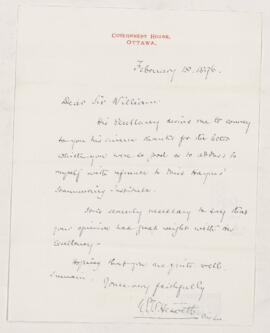 GOVERNMENT HOUSE,
OTTAWA.
February 18, 1876.
Dear Sir William.
His Excellency desires me to convey
to you his sincere thanks for the letter
which you were so good as to address to
myself with reference to Miss
Institute.
It is scarcely necessary to say that
your opinion has great weight with His
Excellency
Hoping that you are quite well.
I remain
Yours very faithfully